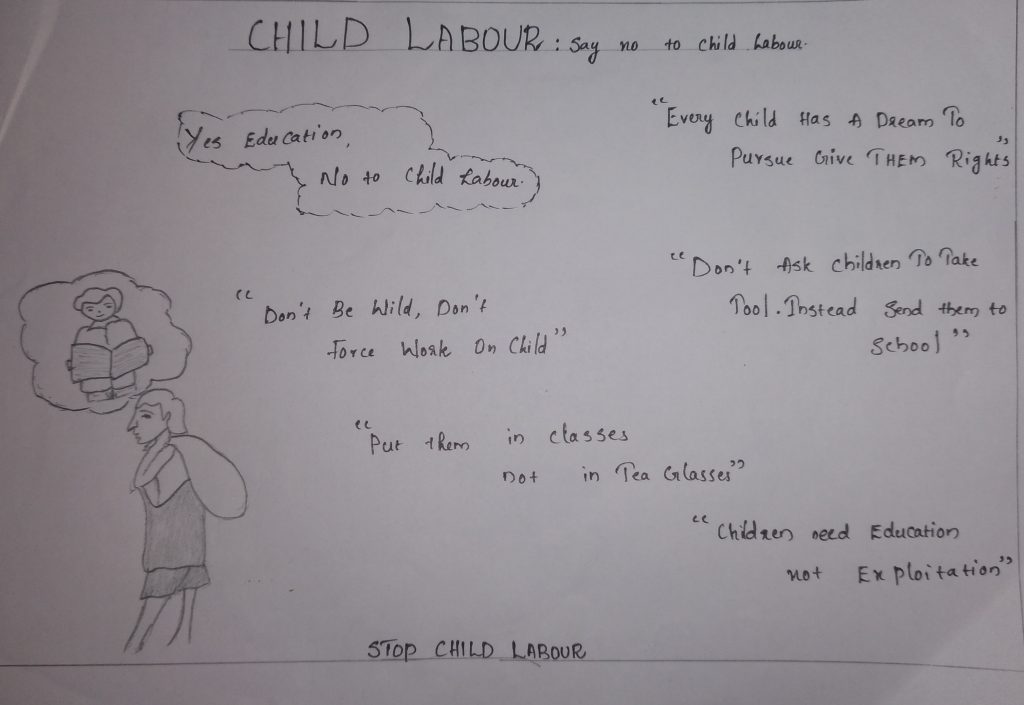 CHILD LABOUR : Say no to child Labour.
Yes Education,
No to Child Labour.
"Every Child Has A Dream To
Pursue Give THEM Rights"
"Don't Ask Children To Take
Tool. Instead Send them to
School"
"Don't Be Wild, Don't
Force Work On Child"
"Put them in classes
not in Tea Glasses"
"Children need Education
not Exploitation"
STOP CHILD LABOUR